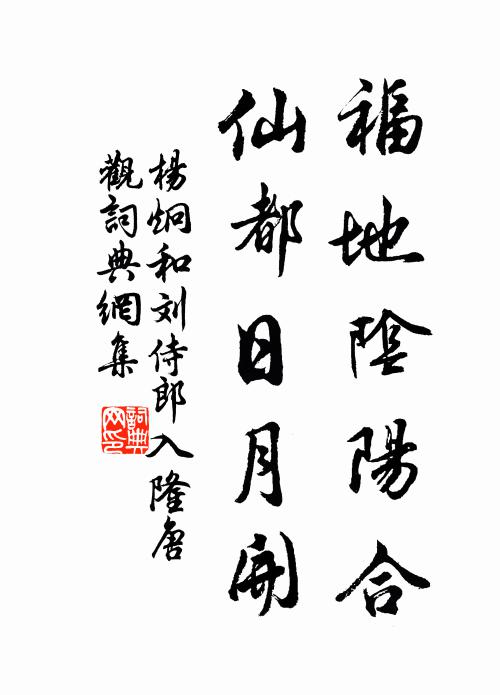 福地陰陽合
仙都日月開
楊炯和刘侍郎入隆唐
觀詞典網集
詞典网印